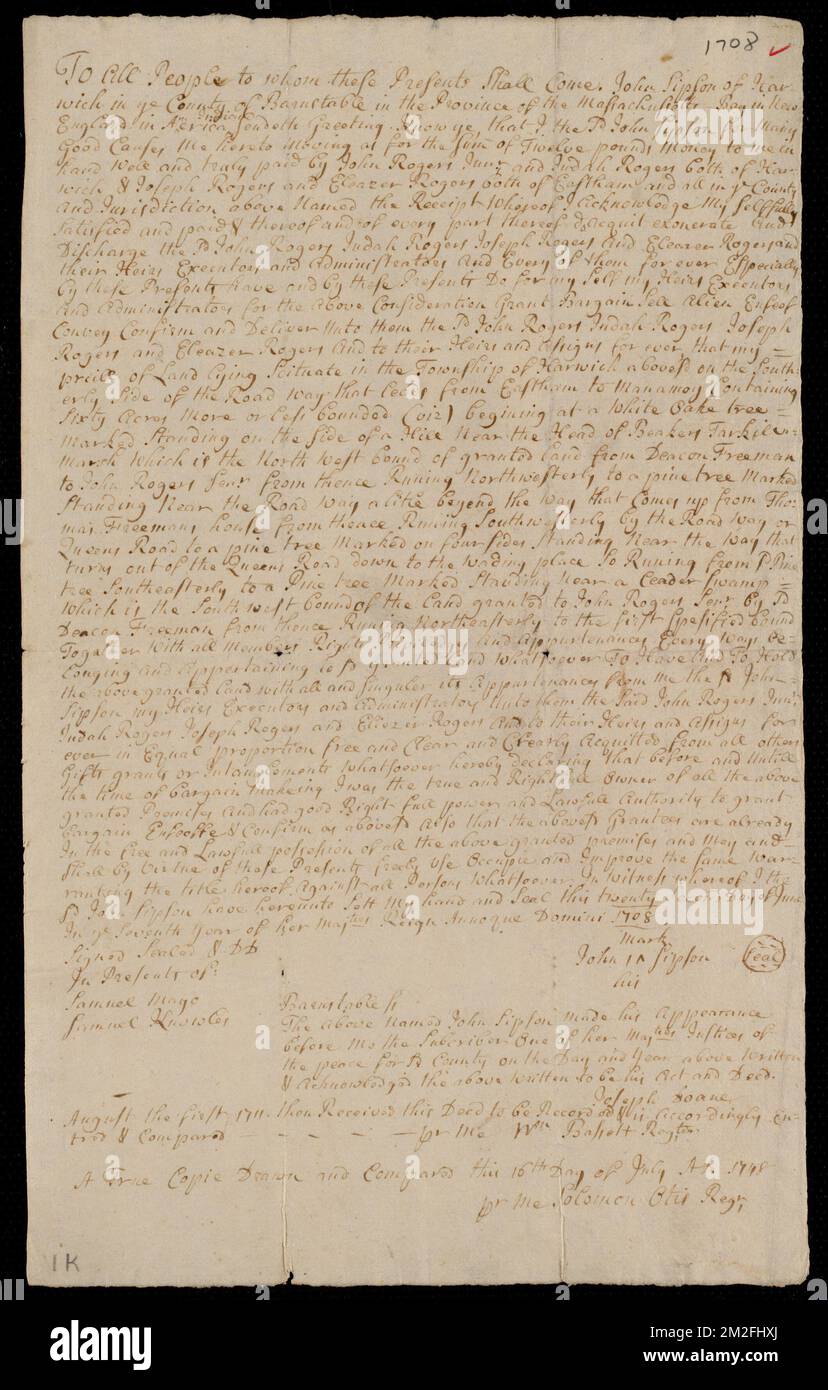 1708 ✓
To All People to whom these Presents Shall Come. John Sipson of Har-
wich in ye County of Barnstable in the Province of the Massachusetts Bay in New
England in America Indian Sendeth Greeting. Know ye, that I the sd John Sipson for Many
Good Causes Me hereto Moving as for the Sum of Twelve pounds Money to me in
hand well and truly paid by John Rogers Junr and Judah Rogers both of Har-
wich & Joseph Rogers and Eleazer Rogers both of Eastham and all in ye County
And Jurisdiction above Named the Receipt whereof I Acknowledge My Self fully
Satisfied and paid & thereof and of every part thereof do Acquit exonerate And
Discharge the sd John Rogers Judah Rogers Joseph Rogers And Eleazer Rogers and
their Heirs Executors and Administrators And Every of them for ever Especially
by these Presents have and by these Presents Do for my Self my Heirs Executors
And Administrators for the Above Consideration Grant Bargain Sell Alien Enfeof
Convey Confirm and Deliver Unto them the sd John Rogers Judah Rogers Joseph
Rogers and Eleazer Rogers And to their Heirs and Assigns for ever, that my
peice of Land lying Scituate in the Township of Harwich abovesd on the South-
erly Side of the Road way that leads from Eastham to Manamoy Containing
Sixty Acres More or less bounded (viz) begining at a White Oake tree
Marked Standing on the side of a Hill Near the Head of Beakers Tarkiln
Marsh Which is the North West bound of granted land from Deacon Freeman
to John Rogers Senr from thence Runing Northwesterly to a pine tree Marked
Standing Near the Road Way a litle beyond the way that Comes up from Tho-
mas Freemans house from thence Runing Southwesterly by the Road Way or
Queens Road to a pine tree Marked on four sides standing Near the Way that
turns out of the Queens Road down to the wading place So Runing from sd Pine
tree Southeasterly to a Pine tree Marked Standing Near a Ceader Swamp
Which is the South west bound of the Land granted to John Rogers Senr by sd
Deacon Freeman from thence Runing Northeasterly to the first Spesified bound
Together With all Members Rights and Appurtenances Every Way be-
longing and Appertaining to sd Land Whatsoever To Have And To Hold
the above granted land with all and singuler its Appurtenances from me the sd John
Sipson my Heirs Executors and Administrators Unto them the Said John Rogers Junr
Judah Rogers Joseph Rogers and Eliezer Rogers And to their Heirs and Assigns for
ever in Equal proportion free and Clear and Clearly Acquitted from all others
Gifts grants or Intanglements Whatsoever hereby declaring that before and Untill
the time of bargain makeing I was the true and Rightfull Owner of all the above
granted Premises And had good Right full power and Lawfull Authority to grant
bargain Enfeoffe & Confirm as abovesd Also that the abovesd Grantees are already
In the free and Lawfull possession of all the above granted premises and May and
Shall by Virtue of these Presents freely Use Occupie and Improve the Same War-
ranting the title hereof Against all Persons Whatsoever In Witness whereof I the
sd John Sipson have hereunto Sett My hand and Seal this twenty day of June
In ye Seventh Year of her Majtes Reign Annoque Domini 1708
Signed Sealed & DD
In Presents of
Samuel Mayo
Samuel Knowles
Mark
John Sipson Seal
his
Barnstable ss
The Above Named John Sipson made his Appearance
before Me the Subscriber One of her Majtes Justices of
the peace for sd County on the Day and Year above Written
& Acknowledged the above written to be his Act and Deed.
Joseph Doane
August the first 1711 then Received this Deed to be Recorded & is Accordingly En-
tred & Compared - - - - pr Me Wm Bassett Regtr
A True Copie Drawn and Compared this 16th Day of July AD. 1748
pr Me Solomon Otis Regr
1K
alamy
Image ID: 2M2FHXJ
www.alamy.com